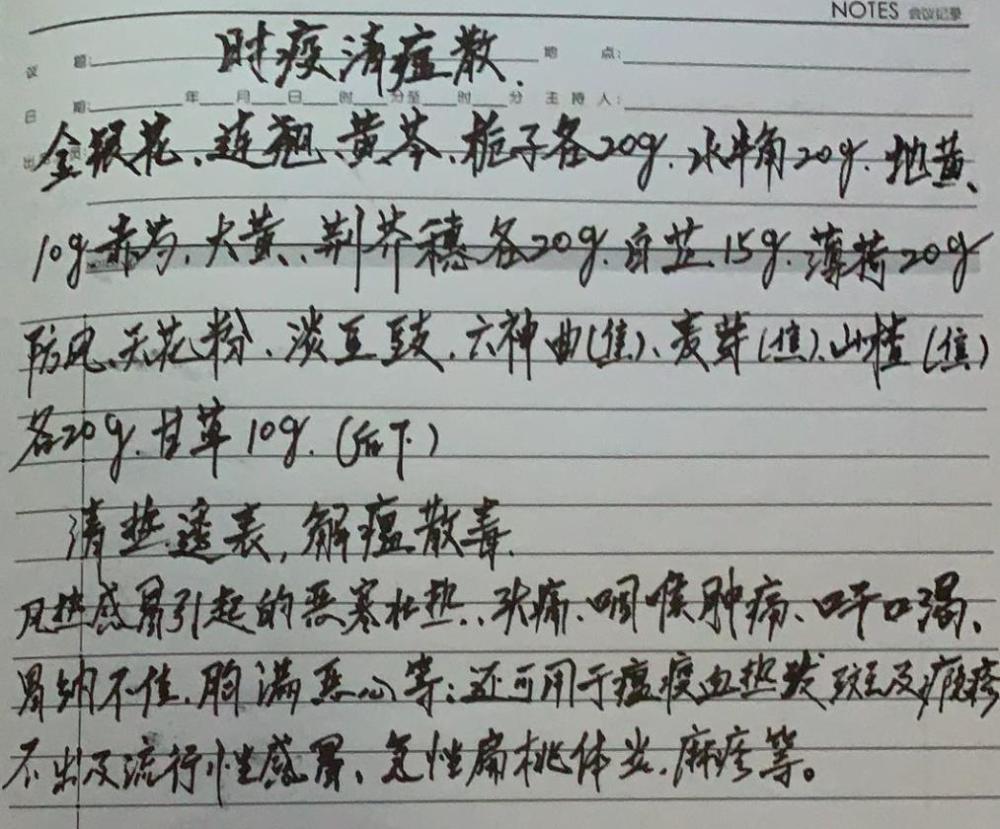 NOTES 会议记录
时疫清瘟散.
议 题: 地 点:
日 期: 年 月 日 时 分至 时 分 主 持 人:
金银花、连翘、黄芩、栀子各20g. 水牛角20g. 地黄、
10g 赤芍、大黄、荆芥穗各20g. 白芷15g. 薄荷20g
防风、天花粉、淡豆豉、六神曲(焦)、麦芽(焦)、山楂(焦)
各20g. 甘草10g. (后下)
清热透表, 解瘟散毒.
凡热感冒引起的恶寒壮热、头痛、咽喉肿痛、口干口渴、
胃纳不佳、胸满恶心等; 还可用于瘟疫血热发斑及疹
不出及流行性感冒、急性扁桃体炎、麻疹等。